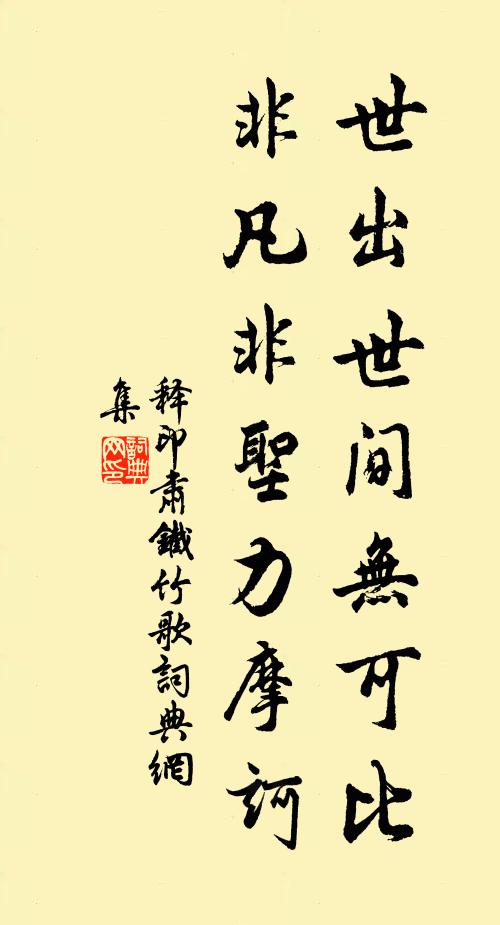 世出世間無可比
非凡非聖力摩訶
释印肃鐵竹歌詞典網
集
詞典网印